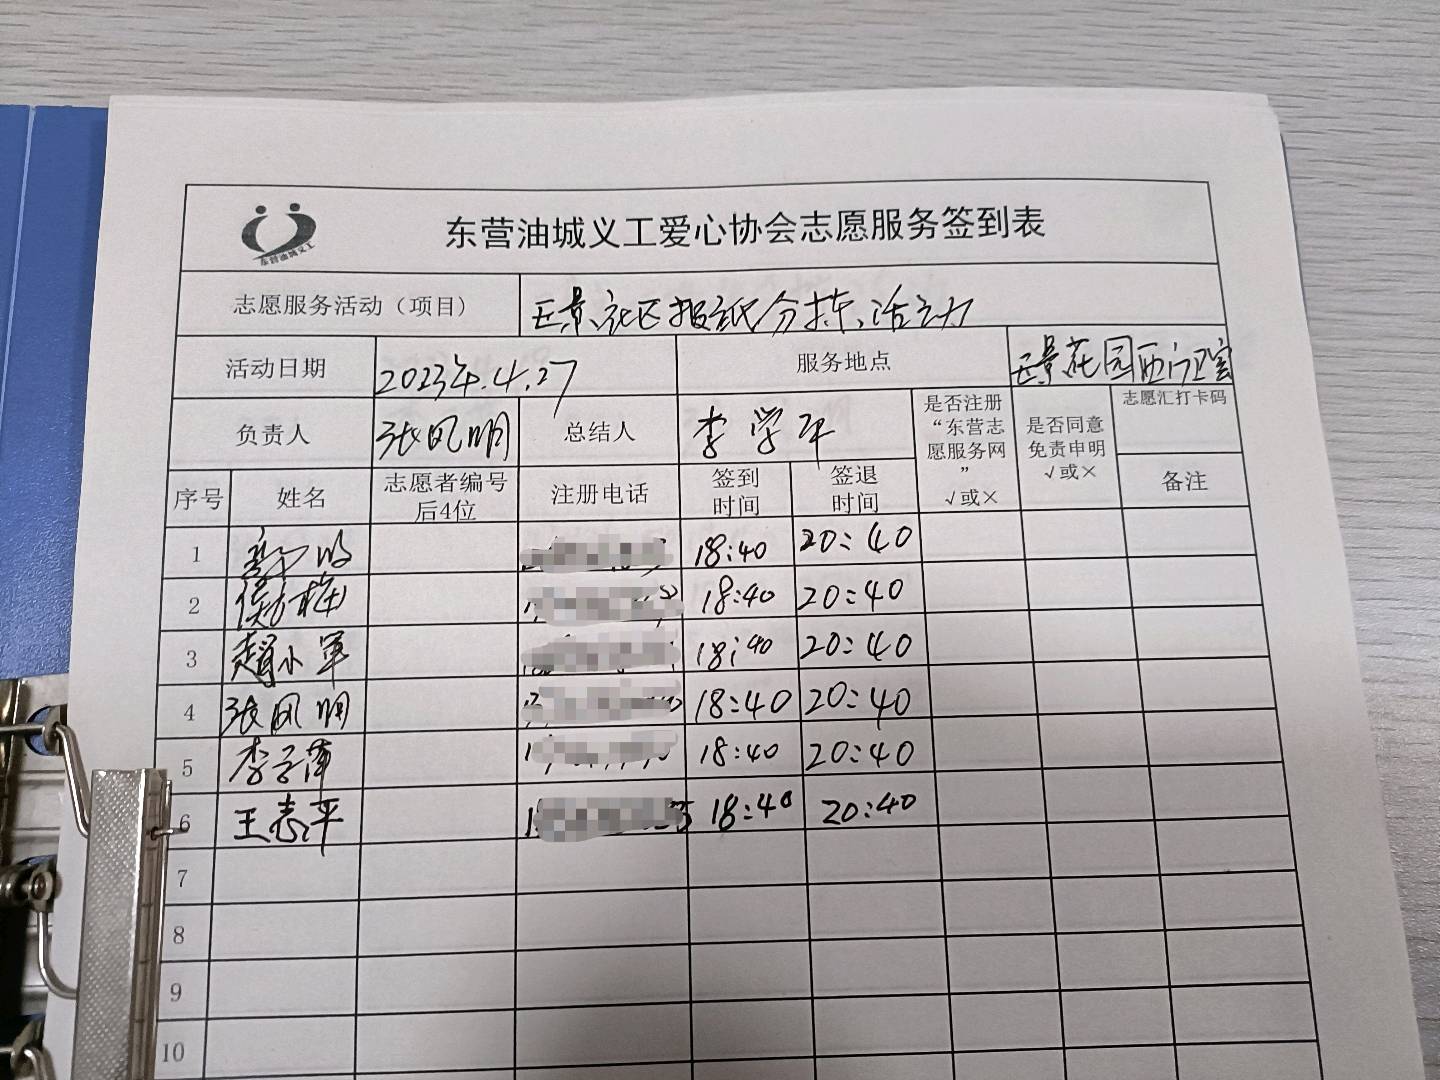 东营油城义工
东营油城义工爱心协会志愿服务签到表
志愿服务活动（项目） 社区报纸分拣活动
活动日期 2023年.4.27 服务地点 花园西门卫室
负责人 张凤明 总结人 李学平 是否注册“东营志愿服务网” √或× 是否同意免责申明 √或× 志愿汇打卡码
序号 姓名 志愿者编号后4位 注册电话 签到时间 签退时间 备注
1 18:40 20:40
2 18:40 20:40
3 赵小军 18:40 20:40
4 张凤明 18:40 20:40
5 李子萍 18:40 20:40
6 王志平 18:40 20:40
7
8
9
10